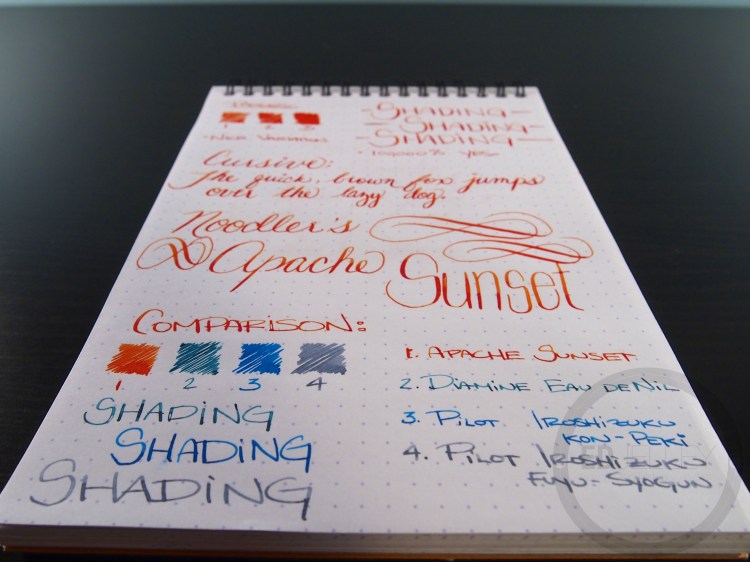 1 2 3
-SHADING-
-SHADING-
-SHADING-
Cursive:
The quick, brown fox jumps
over the lazy dog.
Noodler's
Apache
Sunset
COMPARISON:
1 2 3 4
SHADING
SHADING
SHADING
1. APACHE SUNSET
2. DIAMINE EAU DE NIL
3. PILOT IROSHIZUKU
KON-PEKI
4. PILOT IROSHIZUKU
FUYU-SYOGUN